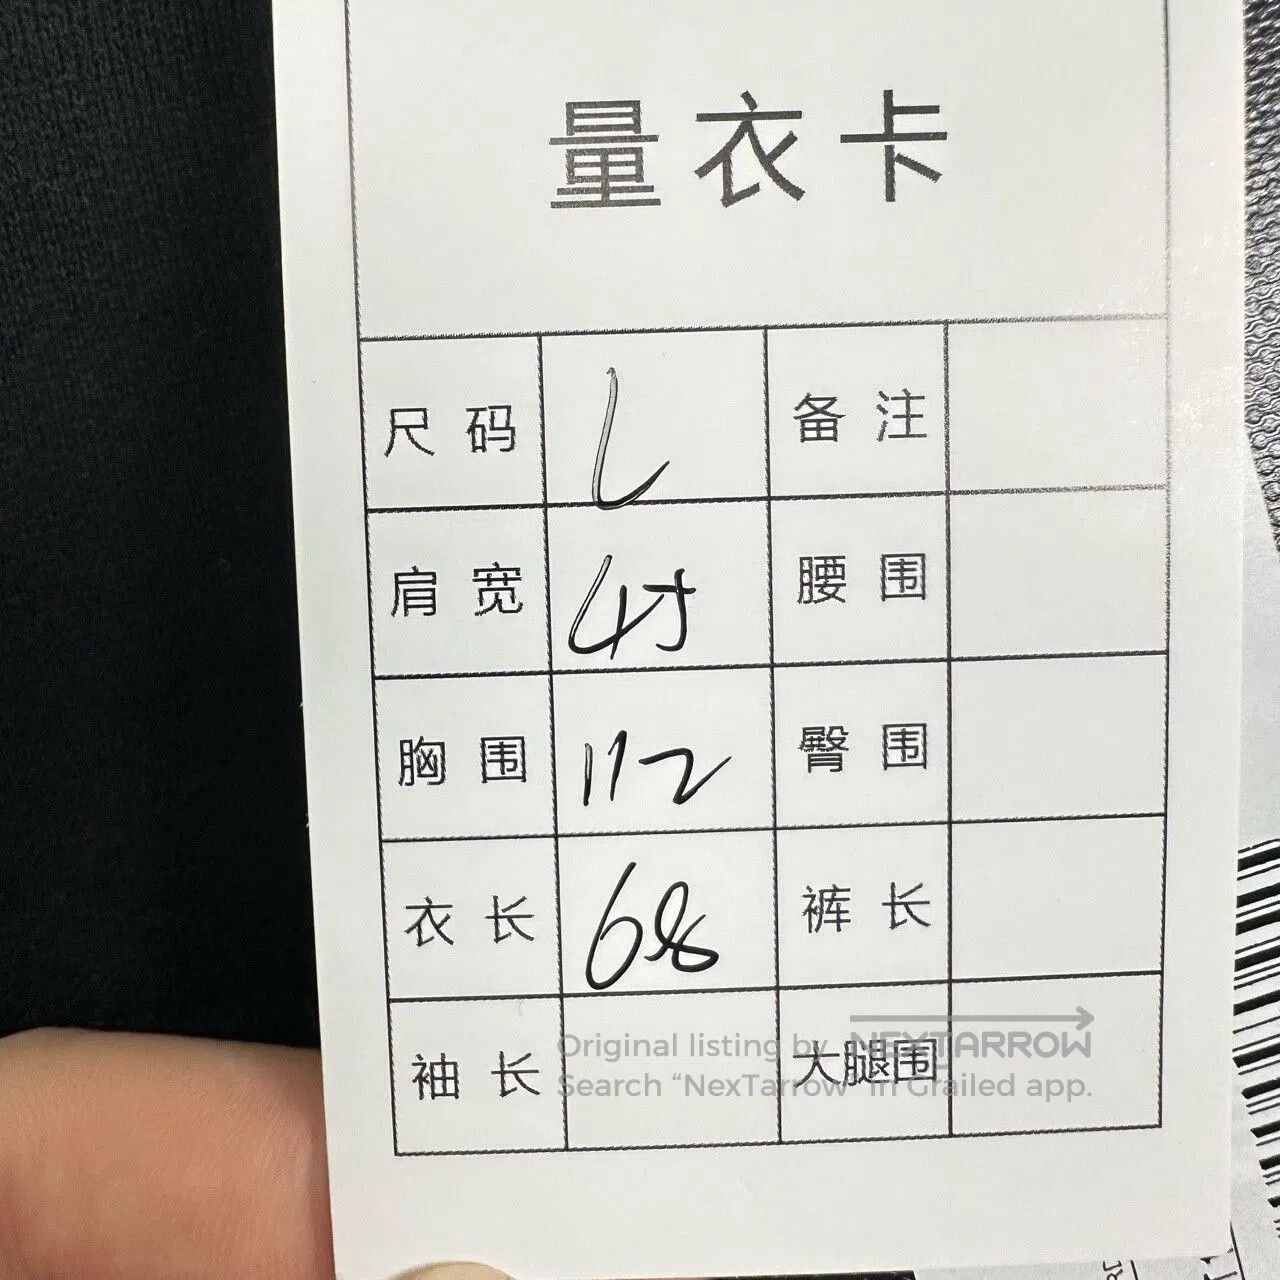 量衣卡
尺码 L 备注
肩宽 45 腰围
胸围 112 臀围
衣长 68 裤长
袖长 大腿围
Original listing by NEXTARROW
Search “NexTarrow” in Grailed app.